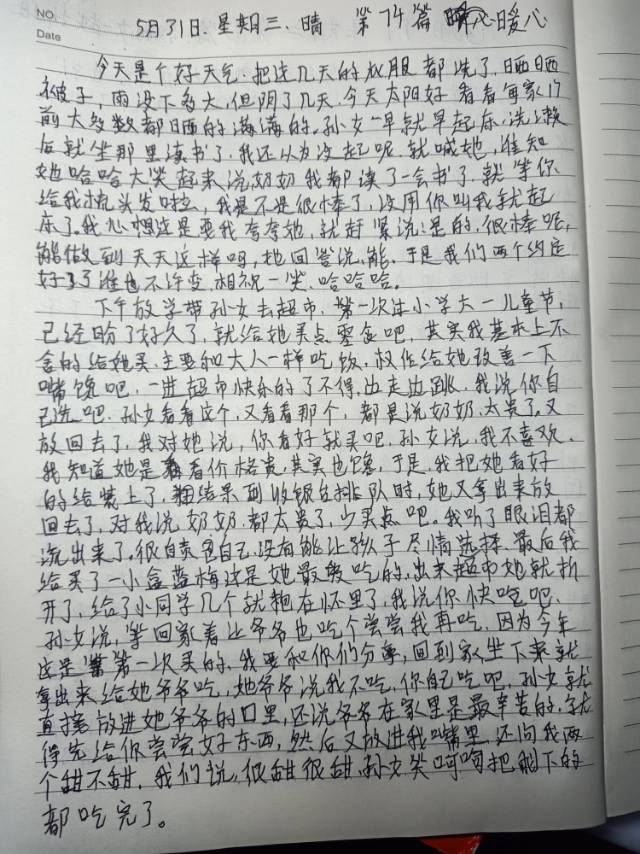 NO.
Date
5月31日.星期三.晴 第74篇 暖心暖心
今天是个好天气.把这几天的衣服都洗了.晒晒
被子,雨没下多大,但阴了几天.今天太阳好看看每家门
前大多数都晒的满满的.孙女一早就早起床.洗漱
后就坐那里读书了.我还以为没起呢.就喊她,谁知
她哈哈大笑起来说奶奶我都读了一会书了,就等你
给我梳头发啦,我是不是很棒了,没用你叫我就起
床了.我心想这是要我夸夸她,就赶紧说:是的.很棒呢,
能做到天天这样吗,她回答说,能.于是我们两个约定
好了谁也不许变.相视一笑、哈哈哈。
下午放学带孙女去超市,第一次过小学六一儿童节,
已经盼了好久了,就给她买点零食吧,其实我基本上不
舍的给她买.主要和大人一样吃饭,权作给她改善一下
嘴馋吧,一进超市快乐的了不得.边走边跳,我说你自
己选吧.孙女看看这个,又看看那个,都是说奶奶.太贵了.又
放回去了,我对她说,你看好就买吧.孙女说.我不喜欢.
我知道她是看价格贵,其实也馋,于是.我把她看好
的给装上了,结果到收银台排队时,她又拿出来放
回去了,对我说奶奶.都太贵了,少买点吧。我听了眼泪都
流出来了.很自责自己.没有能让孩子尽情选择.最后我
给买了一小盒蓝莓这是她最爱吃的,出来超市她就拆
开了,给了小同学几个就抱在怀里了,我说你快吃吧、
孙女说,等回家着让爷爷也吃个尝尝我再吃,因为今年
这是第一次买的、我要和你们分享,回到家坐下来就
拿出来给她爷爷吃,她爷爷说我不吃,你自己吃吧,孙女就
直接放进她爷爷的口里,还说爷爷在家里是最辛苦的,就
得先给你尝尝好东西,然后又放进我嘴里.还问我两
个甜不甜.我们说,很甜很甜.孙女笑呵呵把剩下的
都吃完了。